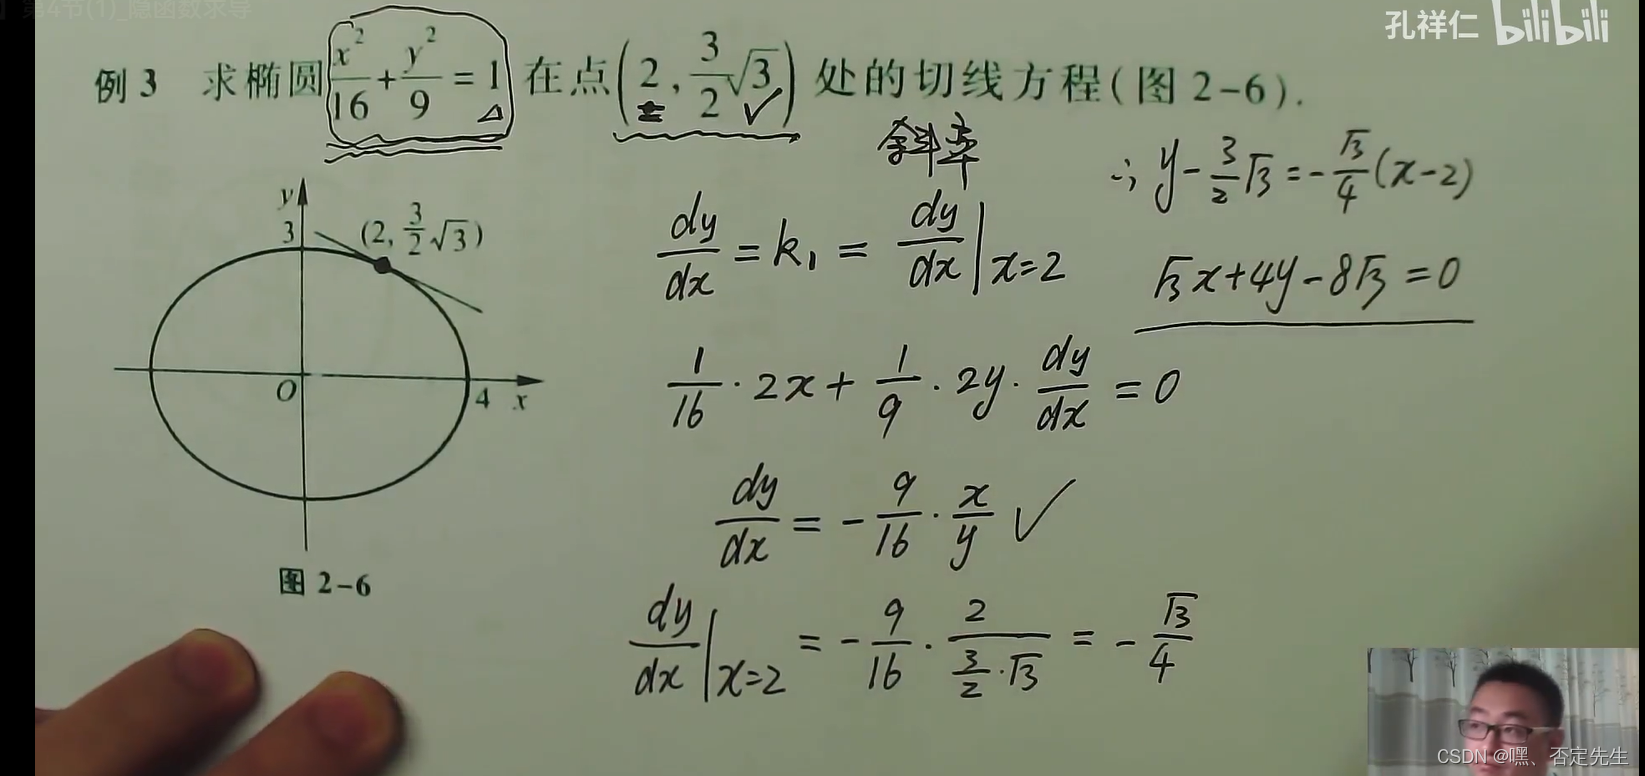 第4节(1)_隐函数求导
孔祥仁 bilibili
例 3 求椭圆 x²/16 + y²/9 = 1 在点(2, 3/2 √3) 处的切线方程(图 2-6).
斜率
∴ y - 3/2 √3 = - √3/4 (x-2)
√3x+4y-8√3=0
dy/dx = k₁ = dy/dx | x=2
1/16 · 2x + 1/9 · 2y · dy/dx = 0
dy/dx = - 9/16 · x/y ✓
dy/dx | x=2 = - 9/16 · 2/(3/2 · √3) = - √3/4
y
3
(2, 3/2 √3)
O
4 x
图 2-6
CSDN @嘿、否定先生